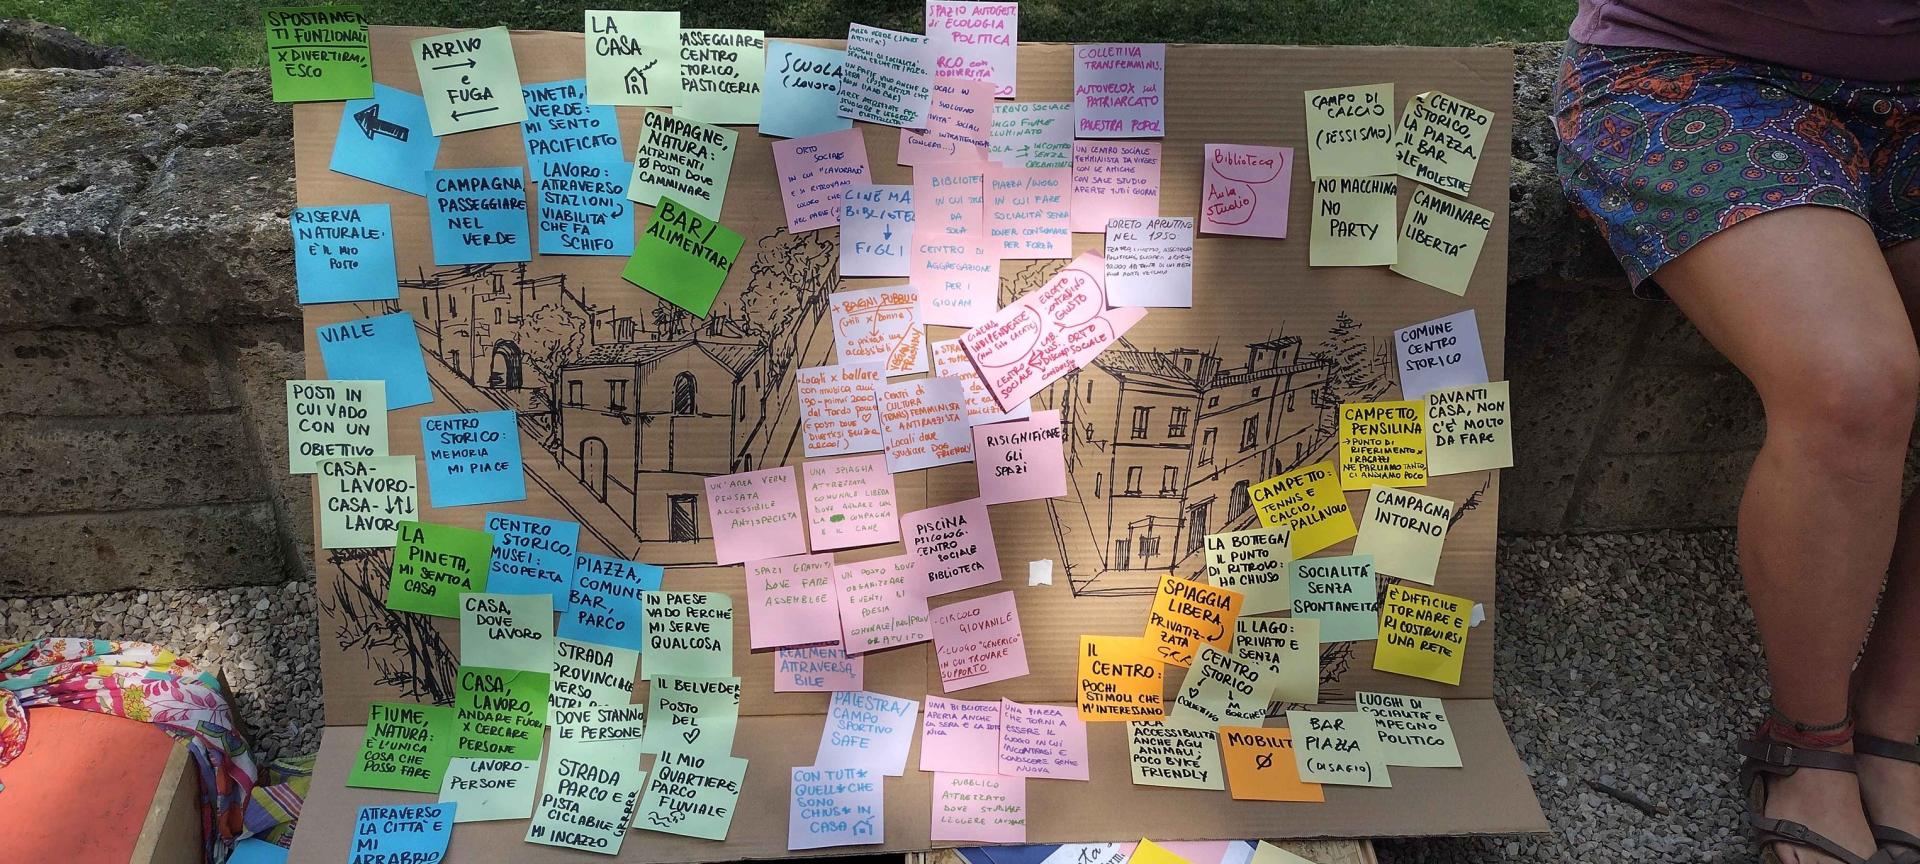 SPOSTAMEN
TI FUNZIONALI
X DIVERTIRMI,
ESCO
ARRIVO
e
FUGA
LA
CASA
PASSEGGIARE
CENTRO
STORICO,
PASTICCERIA
SCUOLA
(lavoro)
SPAZIO AUTOGEST.
di ECOLOGIA
POLITICA
COLLETTIVA
TRANSFEMMINIS.
AUTOVELOX sul
PATRIARCATO
PALESTRA POPOL.
CAMPO DI
CALCIO
(SESSISMO)
CENTRO
STORICO,
LA PIAZZA,
IL BAR
MOLESTIE
PINETA,
VERDE:
MI SENTO
PACIFICATO
CAMPAGNE,
NATURA:
ALTRIMENTI
Ø POSTI DOVE
CAMMINARE
CAMPAGNA,
PASSEGGIARE
NEL
VERDE
LAVORO:
ATTRAVERSO
STAZIONI,
VIABILITÀ
CHE FA
SCHIFO
BAR/
ALIMENTARI
ORTO
SOCIALE
IN CUI "LAVORANO"
E SI RITROVANO
COLORO CHE
CINEMA
BIBLIOTE
FIGLI
BIBLIOTEC
IN CUI
DA
SOLA
CENTRO DI
AGGREGAZIONE
PER I
GIOVANI
PIAZZA/LUOGO
IN CUI FARE
SOCIALITÀ SENZA
DOVER CONSUMARE
PER FORZA
UN CENTRO SOCIALE
FEMMINISTA DA VIVERE
CON LE AMICHE
CON SALE STUDIO
APERTE TUTTI I GIORNI
Biblioteca
Aula
studio
NO MACCHINA
NO
PARTY
CAMMINARE
IN
LIBERTÀ
LORETO APRUTINO
NEL 1950:
RISERVA
NATURALE:
È IL MIO
POSTO
VIALE
+ BAGNI PUBBLICI
accessibili
VEGAN
FRIENDLY
CUCINA
INDIPENDENTE
MERCATO
CONTADINO
GIUSTO
ORTO
SOCIALE
CENTRO
SOCIALE
COMUNE
CENTRO
STORICO
POSTI IN
CUI VADO
CON UN
OBIETTIVO
CENTRO
STORICO:
MEMORIA
MI PIACE
Locali x ballare
con musica anni
'90-primi 2000
(e posti dove
divertirsi senza
alcool!)
Centri di
CULTURA
(TRANS)FEMMINISTA
e ANTIRAZZISTA
Locali dove
studiare DOG
FRIENDLY
RISIGNIFICARE
GLI
SPAZI
CAMPETTO,
PENSILINA
PUNTO DI
RIFERIMENTO X
I RAGAZZI
NE PARLIAMO TANTO,
CI ANDIAMO POCO
DAVANTI
CASA, NON
C'È MOLTO
DA FARE
CASA-
LAVORO-
CASA-
LAVORO
UN'AREA VERDE
PENSATA
ACCESSIBILE
ANTISPECISTA
UNA SPIAGGIA
ATTREZZATA
COMUNALE LIBERA
DOVE ANDARE CON
LA COMPAGNA
E IL CANE
PISCINA
PSICOLOG.
CENTRO
SOCIALE
BIBLIOTECA
CAMPETTO:
TENNIS E
CALCIO,
PALLAVOLO
CAMPAGNA
INTORNO
LA
PINETA,
MI SENTO A
CASA
CENTRO
STORICO,
MUSEI:
SCOPERTA
PIAZZA,
COMUNE
BAR,
PARCO
LA BOTTEGA/
IL PUNTO
DI RITROVO:
HA CHIUSO
SOCIALITÀ
SENZA
SPONTANEITÀ
È DIFFICILE
TORNARE E
RICOSTRUIRSI
UNA RETE
CASA,
DOVE
LAVORO
IN PAESE
VADO PERCHÉ
MI SERVE
QUALCOSA
SPAZI GRATUITI
DOVE FARE
ASSEMBLEE
UN POSTO DOVE
ORGANIZZARE
EVENTI DI
POESIA
GRATUITO
CIRCOLO
GIOVANILE
LUOGO "GENERICO"
IN CUI TROVARE
SUPPORTO
SPIAGGIA
LIBERA
PRIVATIZ-
ZATA
GRR
IL LAGO:
PRIVATO E
SENZA
CENTRO
STORICO
IL
CENTRO:
POCHI
STIMOLI CHE
M'INTERESSANO
STRADA
PROVINCIALE
VERSO
ALTRI
REALMENTE
ATTRAVERSA
BILE
CASA,
LAVORO,
ANDARE FUORI
X CERCARE
PERSONE
IL BELVEDERE
POSTO
DEL
FIUME,
NATURA:
È L'UNICA
COSA CHE
POSSO FARE
DOVE STANNO
LE PERSONE
PALESTRA/
CAMPO
SPORTIVO
SAFE
UNA BIBLIOTECA
APERTA ANCHE
LA SERA E LA DOME
NICA
UNA PIAZZA
CHE TORNI A
ESSERE IL
LUOGO IN CUI
INCONTRARSI E
CONOSCERE GENTE
NUOVA
POCA
ACCESSIBILITÀ
ANCHE AGLI
ANIMALI:
POCO BYKE
FRIENDLY
MOBILIT
Ø
BAR
PIAZZA
(DISAGIO)
LUOGHI DI
SOCIALITÀ E
IMPEGNO
POLITICO
LAVORO-
PERSONE
STRADA
PARCO E
PISTA
CICLABILE
GRRRR
MI INCAZZO
IL MIO
QUARTIERE,
PARCO
FLUVIALE
CON TUTT*
QUELL* CHE
SONO
CHIUS* IN
CASA
PUBBLICO
ATTREZZATO
DOVE STUDIARE
LEGGERE LAVORARE
ATTRAVERSO
LA CITTÀ E
MI
ARRABBIO